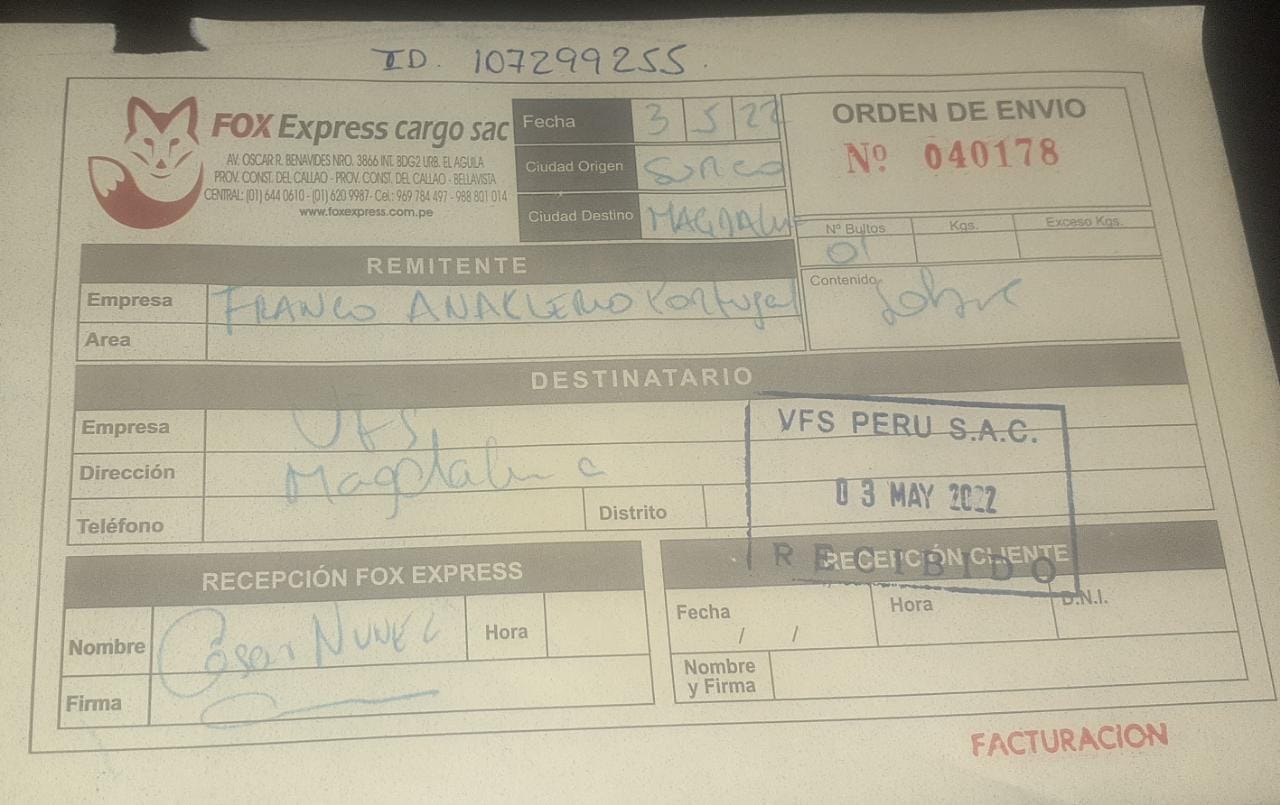 ID. 107299255.
FOX Express cargo sac
AV. OSCAR R. BENAVIDES NRO. 3866 INT. BDG2 URB. EL AGUILA
PROV. CONST. DEL CALLAO - PROV. CONST. DEL CALLAO - BELLAVISTA
CENTRAL: (01) 644 0610 - (01) 620 9987- Cel.: 969 784 497 - 988 801 014
www.foxexpress.com.pe
Fecha 3 5 22
Ciudad Origen Surco
Ciudad Destino MAGDALENA
ORDEN DE ENVIO
Nº 040178
Nº Bultos Kgs. Exceso Kgs.
01
Contenido Sobre
REMITENTE
Empresa FRANCO ANACLERIO Portugal
Area
DESTINATARIO
Empresa VFS
Dirección Magdalena
Teléfono Distrito
VFS PERU S.A.C.
03 MAY 2022
RECIBIDO
RECEPCIÓN FOX EXPRESS
Nombre César NUÑEZ Hora
Firma
RECEPCIÓN CLIENTE
Fecha / / Hora D.N.I.
Nombre
y Firma
FACTURACION